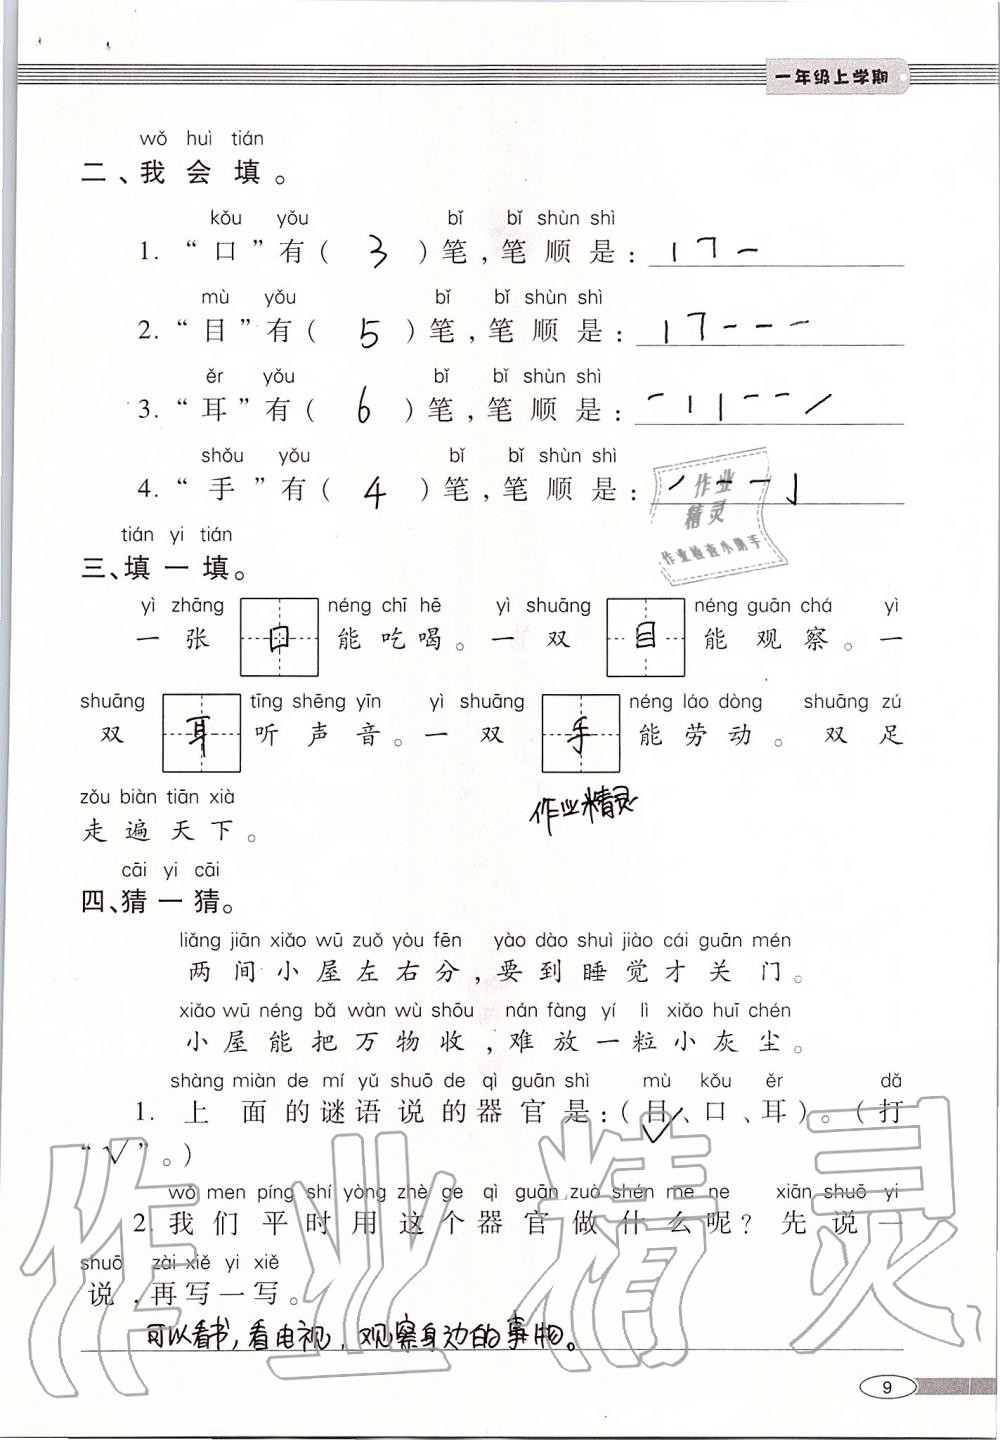 一年级上学期
wǒ huì tián
二、我会填。
kǒu yǒu bǐ bǐ shùn shì
1. “口”有( 3 )笔,笔顺是: 丨 𠃍 一
mù yǒu bǐ bǐ shùn shì
2. “目”有( 5 )笔,笔顺是: 丨 𠃍 一 一 一
ěr yǒu bǐ bǐ shùn shì
3. “耳”有( 6 )笔,笔顺是: 一 丨 丨 一 一 ㇀
shǒu yǒu bǐ bǐ shùn shì
4. “手”有( 4 )笔,笔顺是: ㇒ 一 一 亅
作业
精灵
作业检查小助手
tián yi tián
三、填一填。
yì zhāng néng chī hē yì shuāng néng guān chá yì
一张 口 能吃喝。一双 目 能观察。一
shuāng tīng shēng yīn yì shuāng néng láo dòng shuāng zú
双 耳 听声音。一双 手 能劳动。双足
zǒu biàn tiān xià
走遍天下。
作业精灵
cāi yi cāi
四、猜一猜。
liǎng jiān xiǎo wū zuǒ yòu fēn yào dào shuì jiào cái guān mén
两间小屋左右分,要到睡觉才关门。
xiǎo wū néng bǎ wàn wù shōu nán fàng yí lì xiǎo huī chén
小屋能把万物收,难放一粒小灰尘。
shàng miàn de mí yǔ shuō de qì guān shì mù kǒu ěr dǎ
1. 上面的谜语说的器官是:(目✓、口、耳)。(打
“√”。)
wǒ men píng shí yòng zhè ge qì guān zuò shén me ne xiān shuō yi
2. 我们平时用这个器官做什么呢?先说一
shuō zài xiě yi xiě
说,再写一写。
可以看书,看电视,观察身边的事物。
作业精灵
9